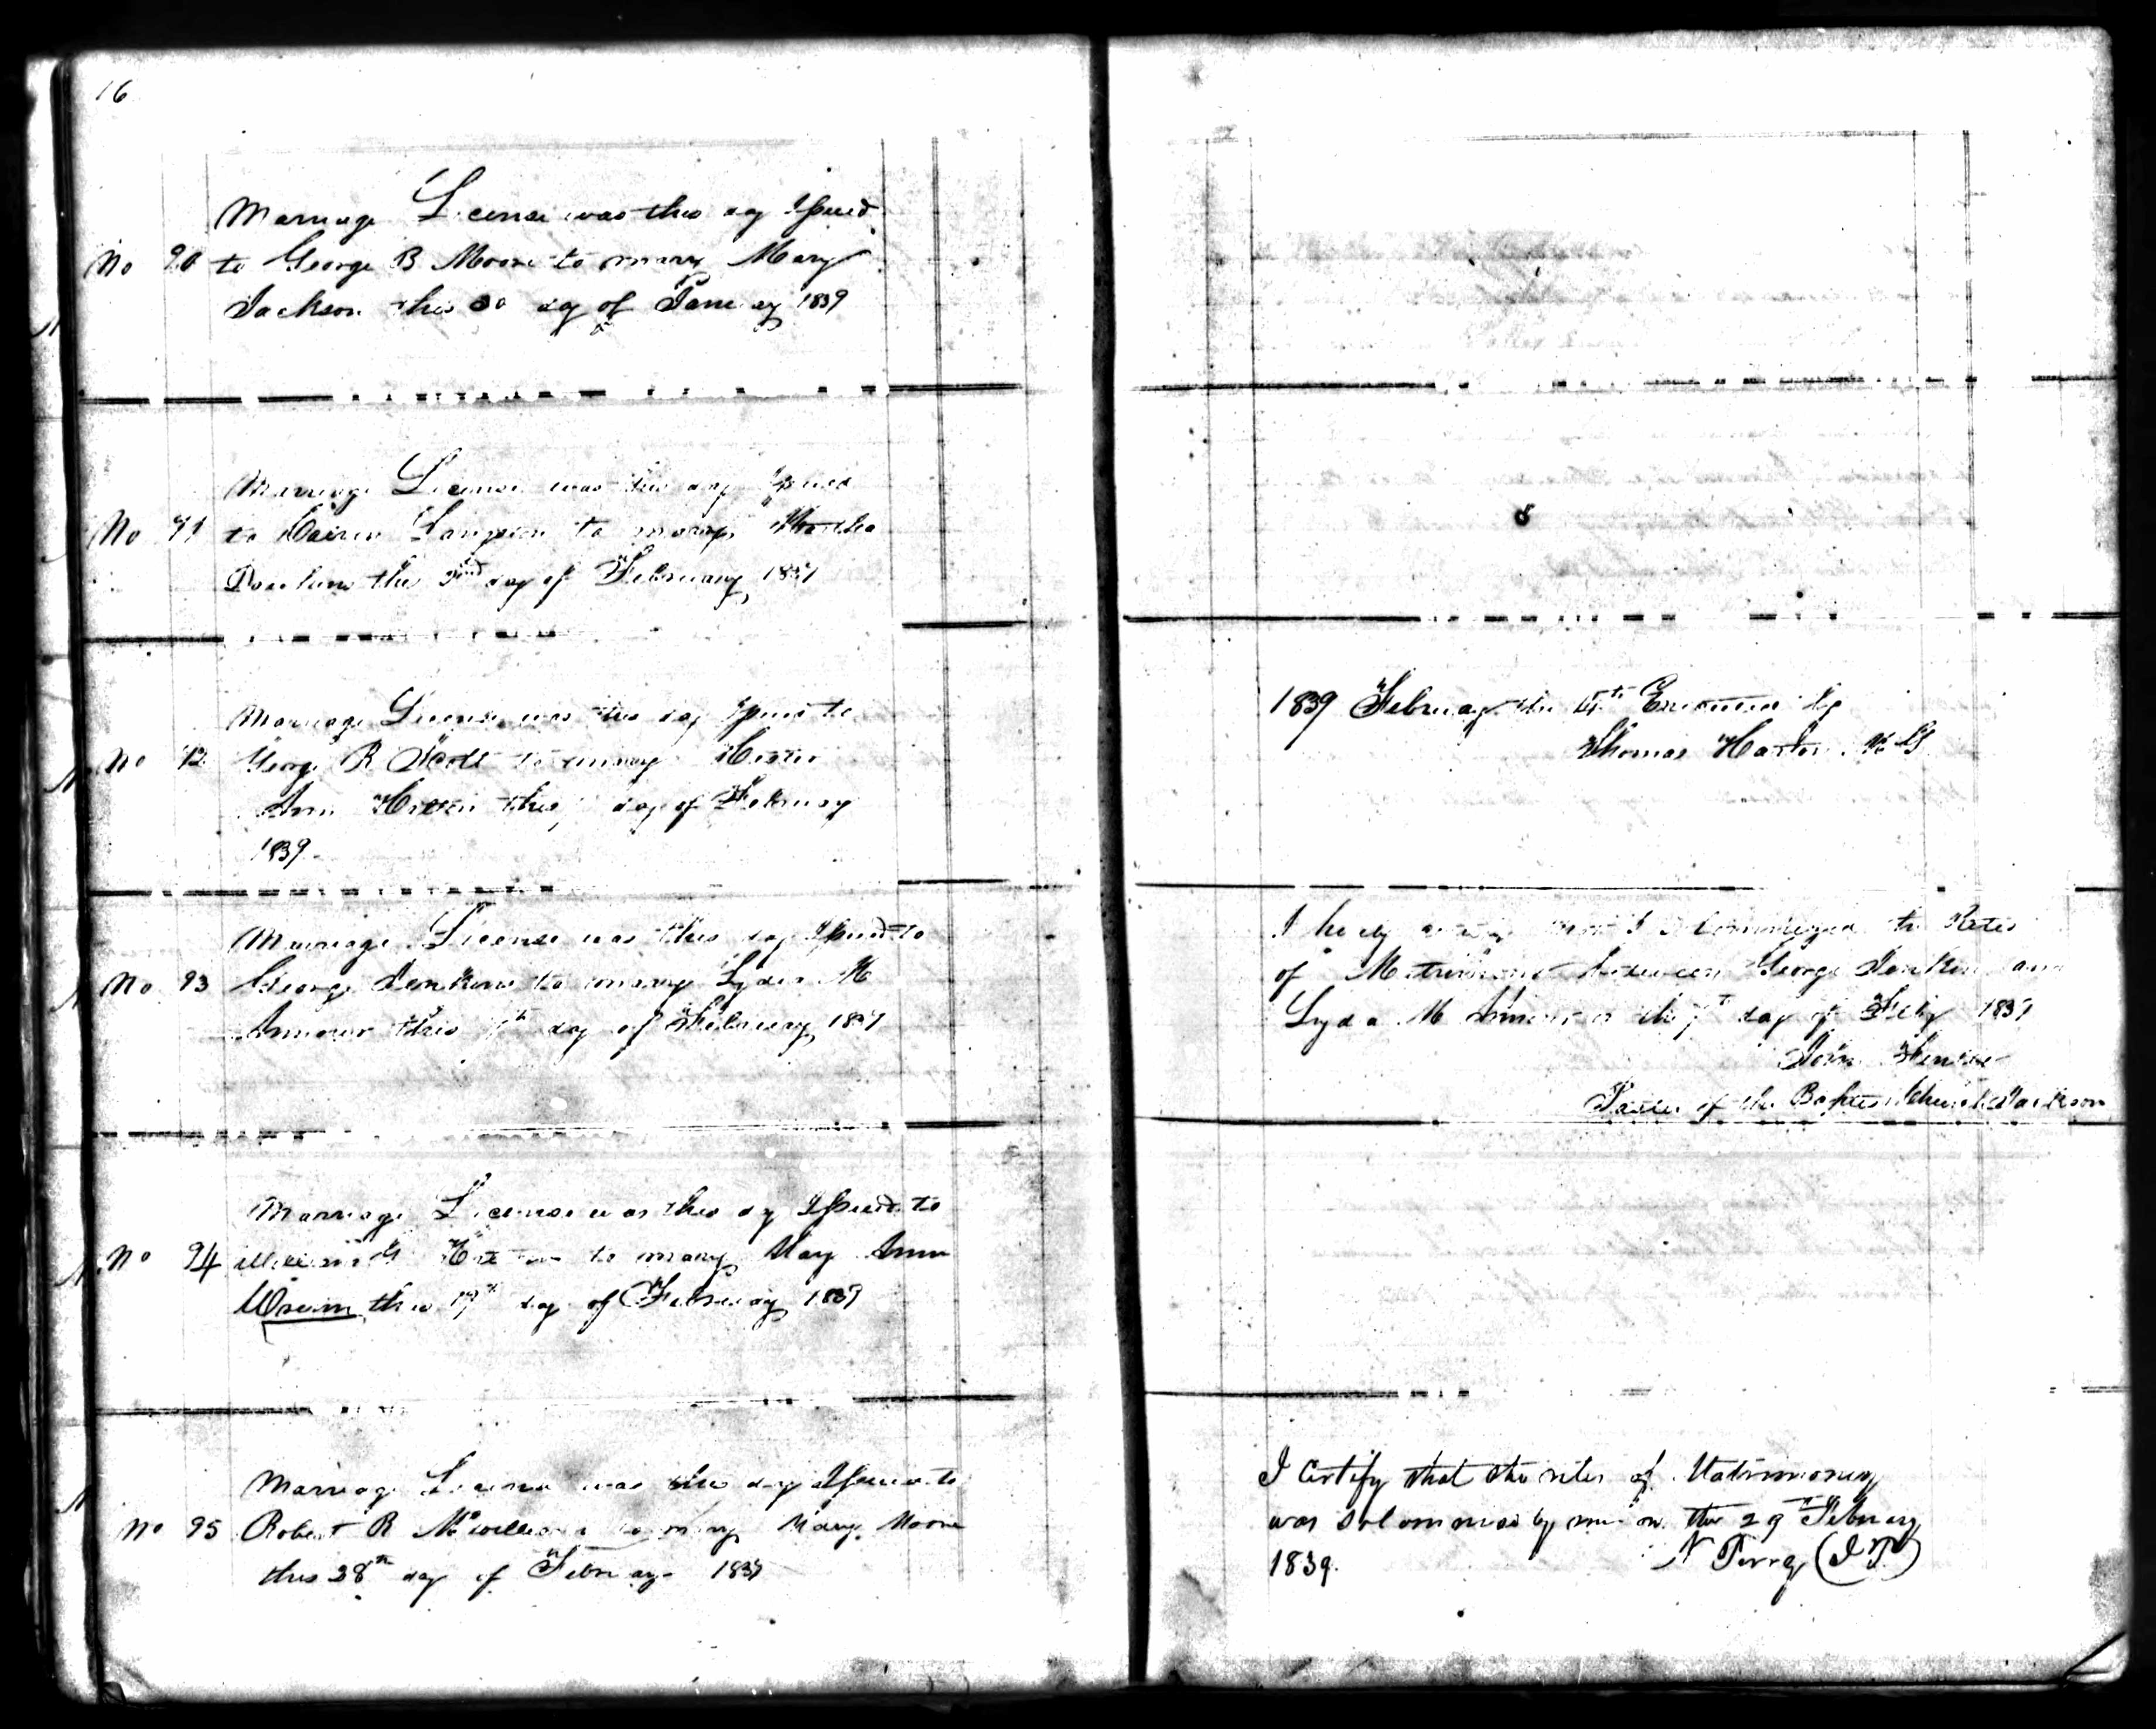 16
Marriage License was this day Issued
No 90 to George B Moore to marry Mary
Jackson this 30 day of January 1839
Marriage License was this day Issued
No 91 to to marry Martha
this day of February 1839
Marriage License was this day Issued to
No 92 George R Scott to marry Hester
Ann this day of February
1839
1839 February the Executed by
Thomas
Marriage License was this day Issued to
No 93 George Jenkins to marry Lyder M
Armour this 7th day of February 1839
I hereby certify that I solemnized the Rites
of Matrimony between George Jenkins and
Lyda M Armour on the 7th day of Feby 1839
John
Pastor of the Baptist Church Jackson
Marriage License was this day Issued to
No 94 William to marry Mary Ann
this 19th day of February 1839
Marriage License was this day Issued to
No 95 Robert R McWilliams to marry Mary Moore
this 28th day of February 1839
I Certify that the rites of Matrimony
was solomnised by me on the 29 February
1839. N Perry (JP)